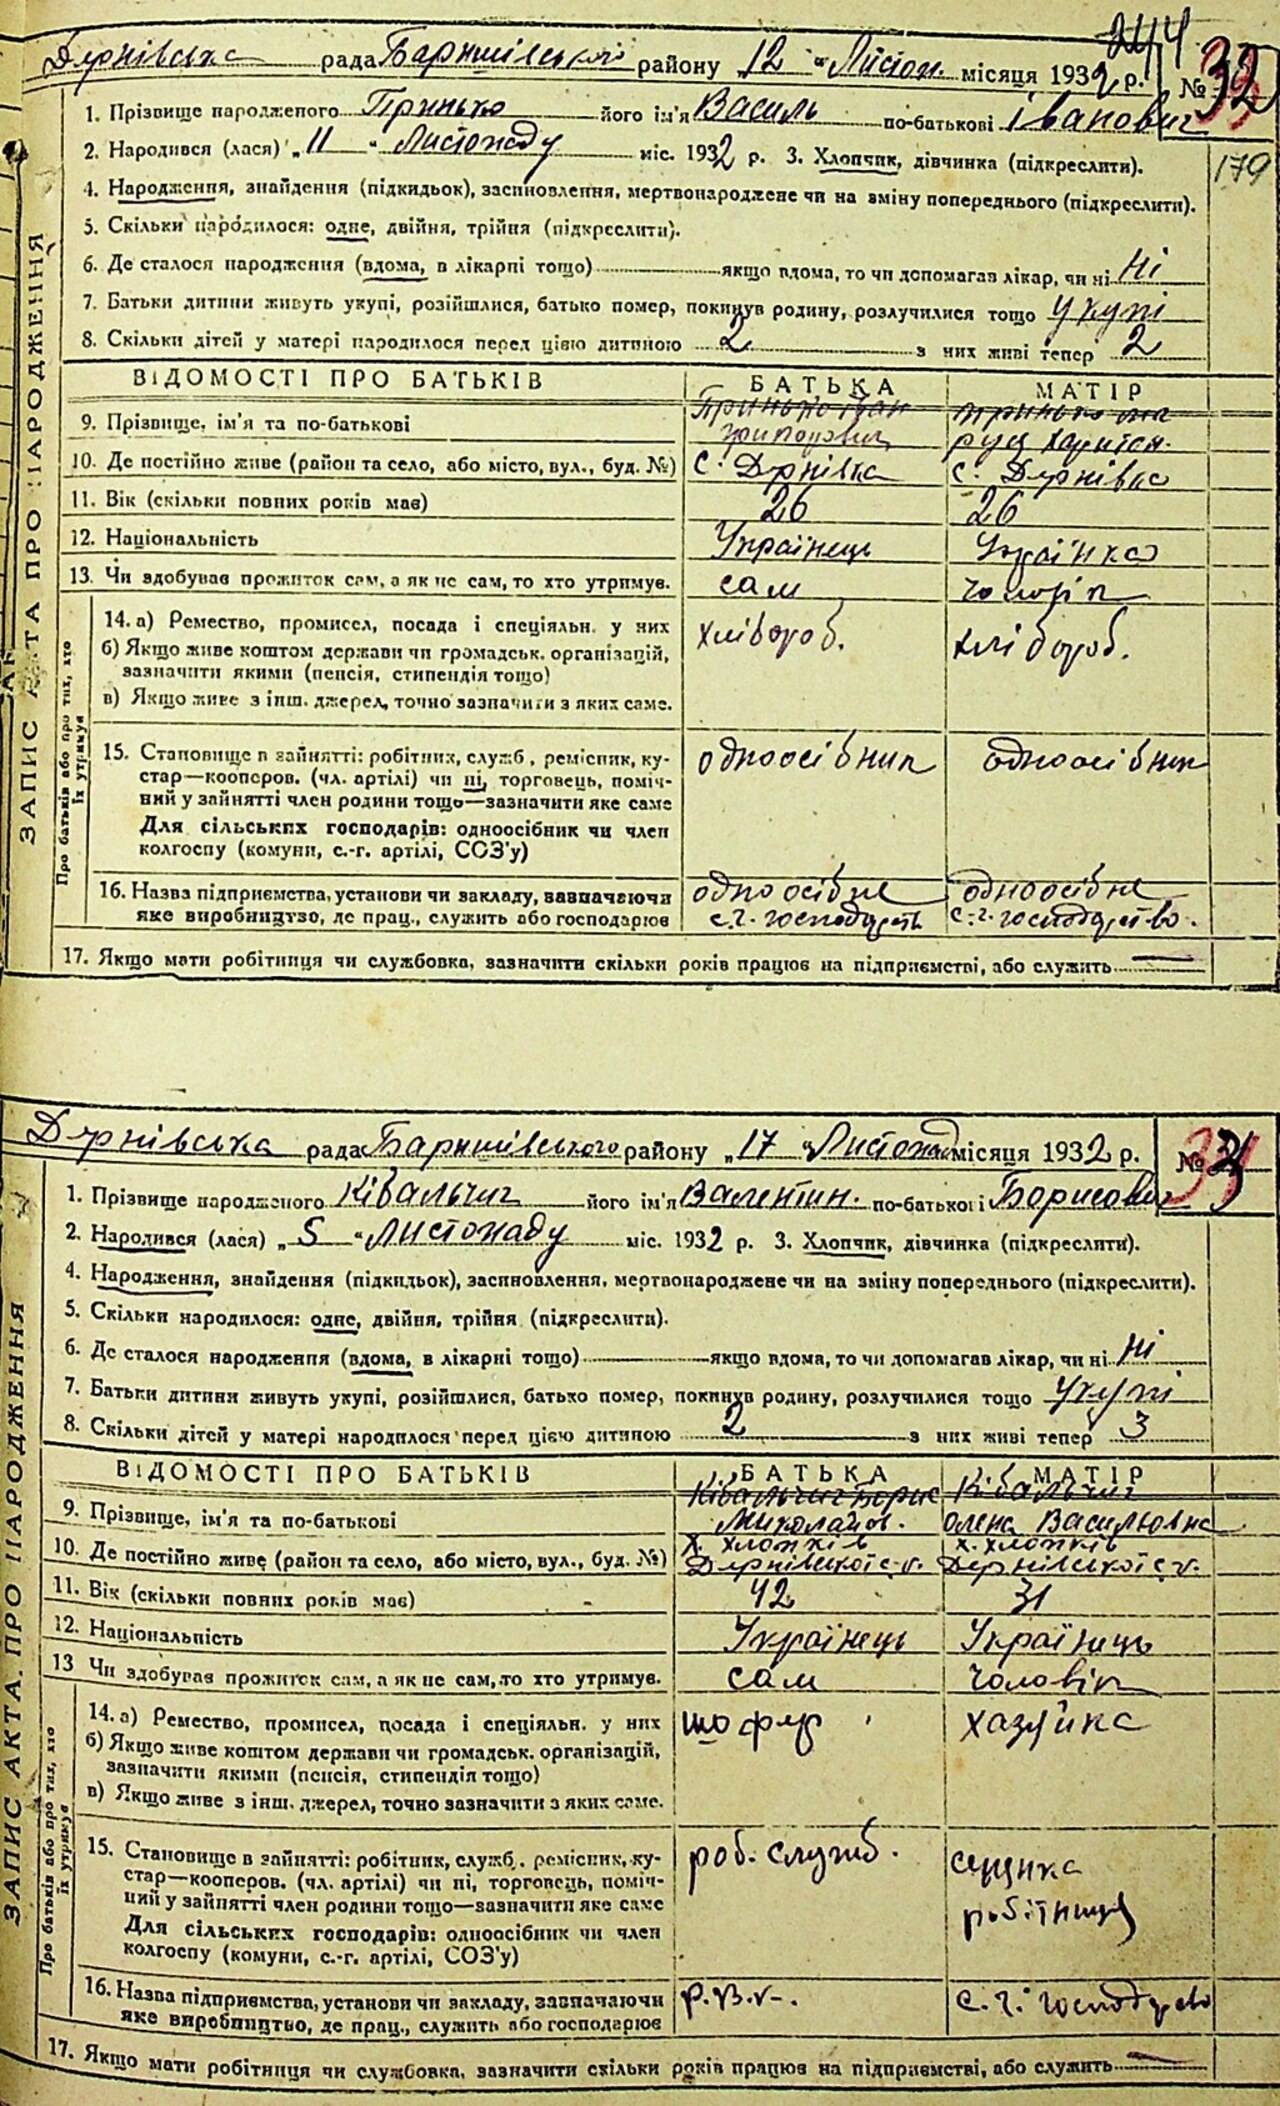 244
Дернівська рада Баришівського району „12“ Листоп. місяця 1932 р. № 32
1. Прізвище народженого Гринько його ім'я Василь по-батькові Іванович
2. Народився (лася) „11“ Листопаду міс. 1932 р. 3. Хлопчик, дівчинка (підкреслити).
179
4. Народження, знайдення (підкидьок), засиновлення, мертвонароджене чи на зміну попереднього (підкреслити).
5. Скільки народилося: одне, двійня, трійня (підкреслити).
6. Де сталося народження (вдома, в лікарні тощо) якщо вдома, то чи допомагав лікар, чи ні ні
7. Батьки дитини живуть укупі, розійшлися, батько помер, покинув родину, розлучилися тощо укупі
8. Скільки дітей у матері народилося перед цією дитиною 2 з них живі тепер 2
ЗАПИС АКТА ПРО НАРОДЖЕННЯ
ВІДОМОСТІ ПРО БАТЬКІВ БАТЬКА МАТІР
9. Прізвище, ім'я та по-батькові Гринько Іван Гринько
харитон.
10. Де постійно живе (район та село, або місто, вул., буд. №) с. Дернівка с. Дернівка
11. Вік (скільки повних років має) 26 26
12. Національність Українець Українка
13. Чи здобував прожиток сам, а як не сам, то хто утримує. сам чоловік
Про батьків або про тих, хто їх утримує
14. а) Ремество, промисел, посада і спеціяльн. у них хлібороб. хлібороб.
б) Якщо живе коштом держави чи громадськ. організацій,
зазначити якими (пенсія, стипендія тощо)
в) Якщо живе з інш. джерел, точно зазначити з яких саме.
15. Становище в зайнятті: робітник, служб., ремісник, ку- одноосібник одноосібник
стар—кооперов. (чл. артілі) чи ні, торговець, поміч-
ний у зайнятті член родини тощо—зазначити яке саме
Для сільських господарів: одноосібник чи член
колгоспу (комуни, с.-г. артілі, СОЗ'у)
16. Назва підприємства, установи чи закладу, зазначаючи одноосібне одноосібне
яке виробництво, де прац., служить або господарює с.г. господарств с.-г. господарство.
17. Якщо мати робітниця чи службовка, зазначити скільки років працює на підприємстві, або служить —
Дернівська рада Баришівського району „17“ Листопад місяця 1932 р. №
1. Прізвище народженого Ківальчич його ім'я Валентин. по-батькові Борисович
2. Народився (лася) „5“ Листопаду міс. 1932 р. 3. Хлопчик, дівчинка (підкреслити).
4. Народження, знайдення (підкидьок), засиновлення, мертвонароджене чи на зміну попереднього (підкреслити).
5. Скільки народилося: одне, двійня, трійня (підкреслити).
6. Де сталося народження (вдома, в лікарні тощо) якщо вдома, то чи допомагав лікар, чи ні ні
7. Батьки дитини живуть укупі, розійшлися, батько помер, покинув родину, розлучилися тощо укупі
8. Скільки дітей у матері народилося перед цією дитиною 2 з них живі тепер 3
ЗАПИС АКТА ПРО НАРОДЖЕННЯ
ВІДОМОСТІ ПРО БАТЬКІВ БАТЬКА МАТІР
9. Прізвище, ім'я та по-батькові Ківальчич Борис Ківальчич
Миколайов. олена Василювна
10. Де постійно живе (район та село, або місто, вул., буд. №) х. хлопків х. хлопків
Дернівської с.r. Дернівської с.r.
11. Вік (скільки повних років має) 42 31
12. Національність Українець Українець
13 Чи здобував прожиток сам, а як не сам, то хто утримує. сам чоловік
Про батьків або про тих, хто їх утримує
14. а) Ремество, промисел, посада і спеціяльн. у них шофер хазяйка
б) Якщо живе коштом держави чи громадськ. організацій,
зазначити якими (пенсія, стипендія тощо)
в) Якщо живе з інш. джерел, точно зазначити з яких саме.
15. Становище в зайнятті: робітник, служб., ремісник, ку- роб. служб.
стар—кооперов. (чл. артілі) чи ні, торговець, поміч-
ний у зайнятті член родини тощо—зазначити яке саме робітниця
Для сільських господарів: одноосібник чи член
колгоспу (комуни, с.-г. артілі, СОЗ'у)
16. Назва підприємства, установи чи закладу, зазначаючи с.г. господарство
яке виробництво, де прац., служить або господарює
17. Якщо мати робітниця чи службовка, зазначити скільки років працює на підприємстві, або служить —